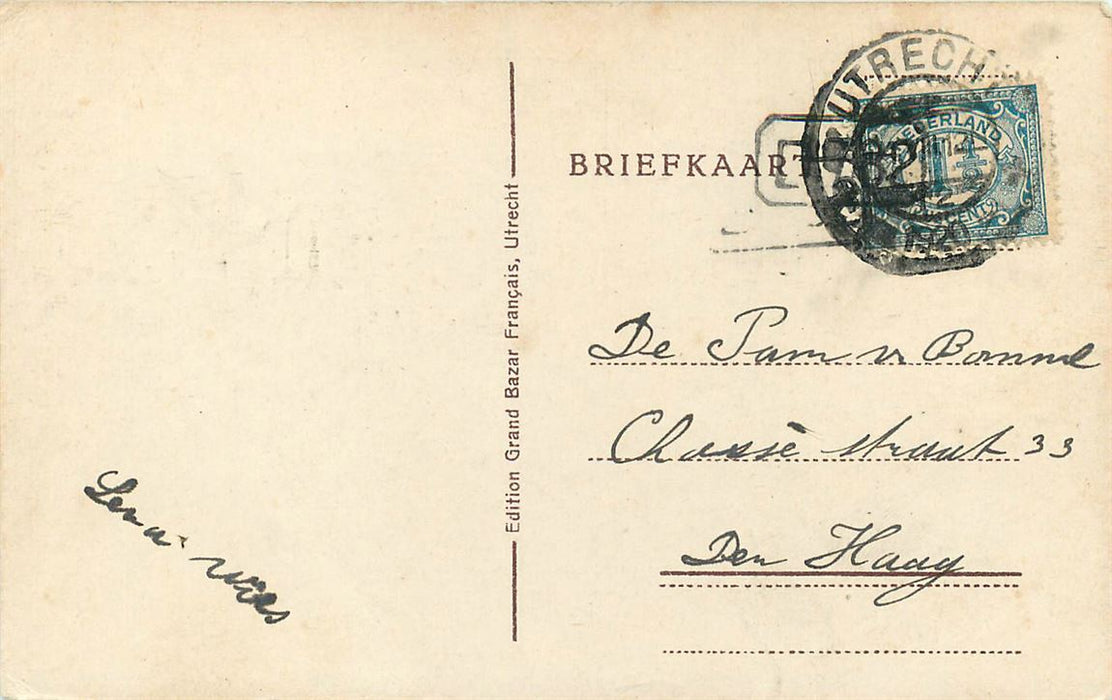 BRIEFKAART
UTRECHT
NEDERLAND
1½
CENT
1920
Edition Grand Bazar Français, Utrecht
De Fam v. Bommel
Chassé straat 33
Den Haag